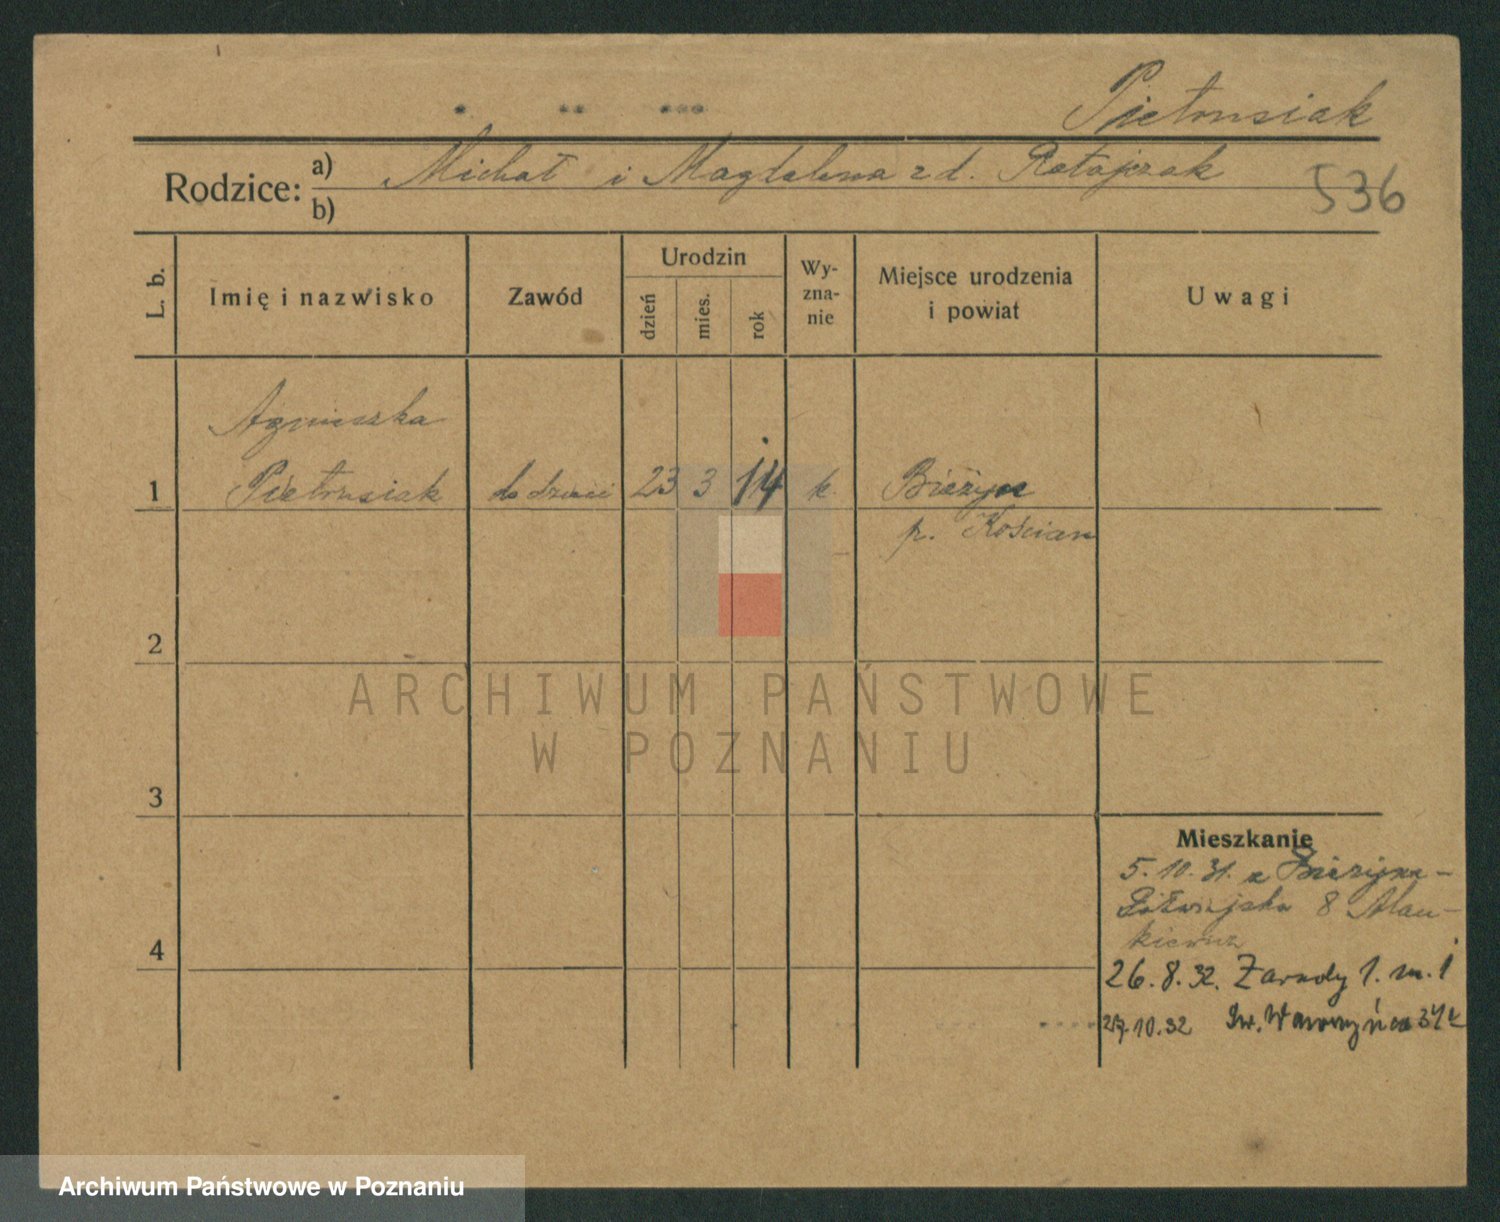 Pietrusiak
Rodzice: a) Michał i Magdalena z d. Ratajczak
b)
536
L. b.
Imię i nazwisko
Zawód
Urodzin
dzień
mies.
rok
Wy-
zna-
nie
Miejsce urodzenia
i powiat
Uwagi
Agnieszka
1 Pietrusiak do dzieci 23 3 14 k Bieżyn
p. Kościan
2
3
4
Mieszkanie
5.10.31. z Bieżyna -
8
26.8.32. Zagrody 1. m. 1
27.10.32 Św. Wawrzyńca 34
ARCHIWUM PAŃSTWOWE
W POZNANIU
Archiwum Państwowe w Poznaniu